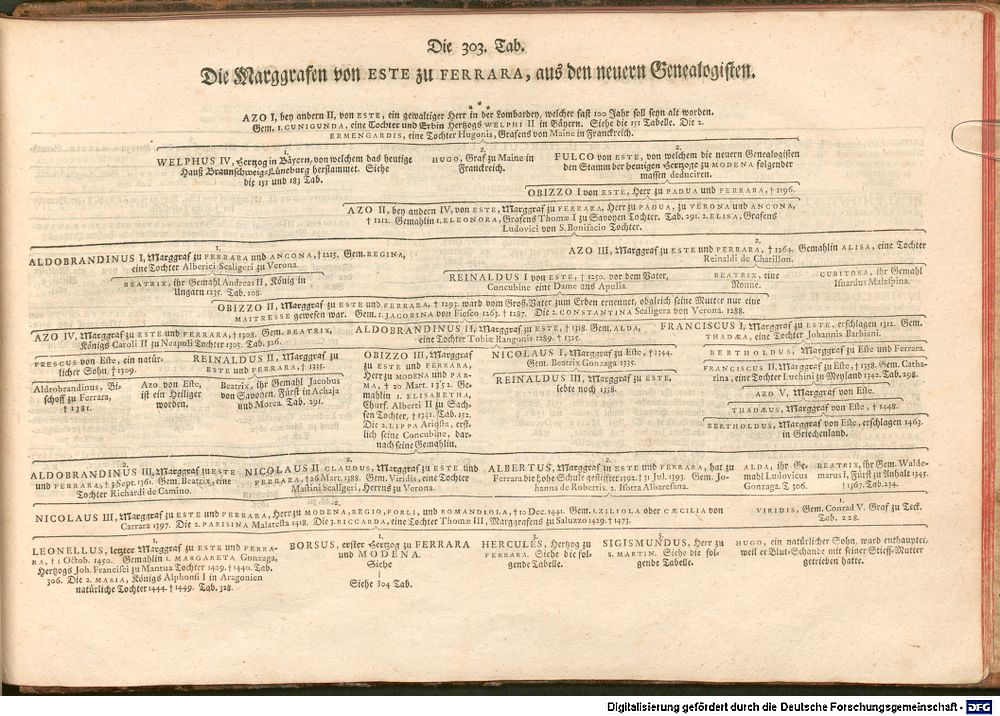 Die 303. Tab.
Die Marggrafen von ESTE zu FERRARA, aus den neuern Genealogisten.
AZO I, bey andern II, von ESTE, ein gewaltiger Herr in der Lombardey, welcher fast 100 Jahr soll seyn alt worden.
Gem. 1. CUNIGUNDA, eine Tochter und Erbin Hertzogs WELPHI II in Bäyern. Siehe die 151 Tabelle. Die 2.
ERMENGARDIS, eine Tochter Hugonis, Grafens von Maine in Franckreich.
1.
WELPHUS IV, Hertzog in Bäyern, von welchem das heutige
Hauß Braunschweig-Lüneburg herstammet. Siehe
die 151 und 183 Tab.
2.
HUGO, Graf zu Maine in
Franckreich.
2.
FULCO von ESTE, von welchem die neuern Genealogisten
den Stamm der heutigen Hertzoge zu MODENA folgender
massen deduciren.
OBIZZO I von ESTE, Herr zu PADUA und FERRARA, † 1196.
AZO II, bey andern IV, von ESTE, Marggraf zu FERRARA, Herr zu PADUA, zu VERONA und ANCONA,
† 1212. Gemahlin 1. ELEONORA, Grafens Thomæ I zu Savoyen Tochter. Tab. 291. 2. ELISA, Grafens
Ludovici von S. Bonifacio Tochter.
1.
ALDOBRANDINUS I, Marggraf zu FERRARA und ANCONA, † 1215. Gem. REGINA,
eine Tochter Alberici Scaligeri zu Verona.
2.
AZO III, Marggraf zu ESTE und FERRARA, † 1264. Gemahlin ALISA, eine Tochter
Reinaldi de Chatillon.
BEATRIX, ihr Gemahl Andreas II, König in
Ungarn 1235. Tab. 108.
REINALDUS I von ESTE, † 1250. vor dem Vater,
Concubine eine Dame aus Apulia.
BEATRIX, eine
Nonne.
CUBITOSA, ihr Gemahl
Isnardus Malaspina.
OBIZZO II, Marggraf zu ESTE und FERRARA, † 1293. ward vom Groß-Vater zum Erben ernennet, obgleich seine Mutter nur eine
MAITRESSE gewesen war. Gem. 1. JACOBINA von Fiesco 1263. † 1287. Die 2. CONSTANTINA Scaligera von Verona. 1288.
AZO IV, Marggraf zu ESTE und FERRARA, † 1308. Gem. BEATRIX,
Königs Caroli II zu Neapoli Tochter 1305. Tab. 326.
ALDOBRANDINUS II, Marggraf zu ESTE, † 1318. Gem. ALDA,
eine Tochter Tobiæ Rangonis 1289. † 1325.
FRANCISCUS I, Marggraf zu ESTE, erschlagen 1312. Gem.
THADÆA, eine Tochter Johannis Barbiani.
FRESCUS von Este, ein natür-
licher Sohn, † 1309.
REINALDUS II, Marggraf zu
ESTE und FERRARA, † 1335.
OBIZZO III, Marggraf
zu ESTE und FERRARA,
Herr zu MODENA und PAR-
MA, † 20 Mart. 1352. Ge-
mahlin 1. ELISABETHA,
Churf. Alberti II zu Sach-
sen Tochter, † 1341. Tab. 152.
Die 2. LIPPA Ariosta, erst-
lich seine Concubine, dar-
nach seine Gemahlin.
NICOLAUS I, Marggraf zu Este, † 1344.
Gem. Beatrix Gonzaga 1335.
BERTHOLDUS, Marggraf zu Este und Ferrara.
FRANCISCUS II, Marggraf zu Este, † 1358. Gem. Catha-
rina, eine Tochter Luchini zu Meyland 1342. Tab. 298.
Aldobrandinus, Bi-
schoff zu Ferrara,
† 1381.
Azo von Este,
ist ein Heiliger
worden.
Beatrix, ihr Gemahl Jacobus
von Savoyen, Fürst in Achaja
und Morea. Tab. 291.
REINALDUS III, Marggraf zu ESTE,
lebte noch 1358.
AZO V, Marggraf von Este.
THADÆUS, Marggraf von Este, † 1448.
BERTHOLDUS, Marggraf von Este, erschlagen 1463.
in Griechenland.
2.
ALDOBRANDINUS III, Marggraf zu ESTE
und FERRARA, † 3 Sept. 1361. Gem. Beatrix, eine
Tochter Richardi de Camino.
2.
NICOLAUS II CLAUDUS, Marggraf zu ESTE und
FERRARA, † 26 Mart. 1388. Gem. Viridis, eine Tochter
Mastini Scaligeri, Herrns zu Verona.
ALBERTUS, Marggraf zu ESTE und FERRARA, hat zu
Ferrara die hohe Schule gestifftet 1392. † 31 Jul. 1393. Gem. Jo-
hanna de Robertis. 2. Isotta Albaresana.
ALDA, ihr Ge-
mahl Ludovicus
Gonzaga. T. 306.
BEATRIX, ihr Gem. Walde-
marus I, Fürst zu Anhalt 1345.
† 1367. Tab. 234.
2.
NICOLAUS III, Marggraf zu ESTE und FERRARA, Herr zu MODENA, REGIO, FORLI, und ROMANDIOLA, † 10 Dec. 1441. Gem. 1. ZILIOLA oder CÆCILIA von
Carrara 1397. Die 2. PARISINA Malatesta 1418. Die 3. RICCARDA, eine Tochter Thomæ III, Margrafens zu Saluzzo 1429. † 1473.
1.
VIRIDIS, Gem. Conrad V. Graf zu Teck.
Tab. 228.
LEONELLUS, letzter Marggraf zu ESTE und FERRA-
RA, † 1 Octob. 1450. Gemahlin 1. MARGARETA Gonzaga,
Hertzogs Joh. Francisci zu Mantua Tochter 1429. † 1440. Tab.
306. Die 2. MARIA, Königs Alphonsi I in Aragonien
natürliche Tochter 1444. † 1449. Tab. 328.
BORSUS, erster Hertzog zu FERRARA
und MODENA.
Siehe
Siehe 304 Tab.
3.
HERCULES, Hertzog zu
FERRARA. Siehe die fol-
gende Tabelle.
3.
SIGISMUNDUS, Herr zu
S. MARTIN. Siehe die fol-
gende Tabelle.
HUGO, ein natürlicher Sohn, ward enthauptet,
weil er Blut-Schande mit seiner Stieff-Mutter
getrieben hatte.
Digitalisierung gefördert durch die Deutsche Forschungsgemeinschaft - DFG